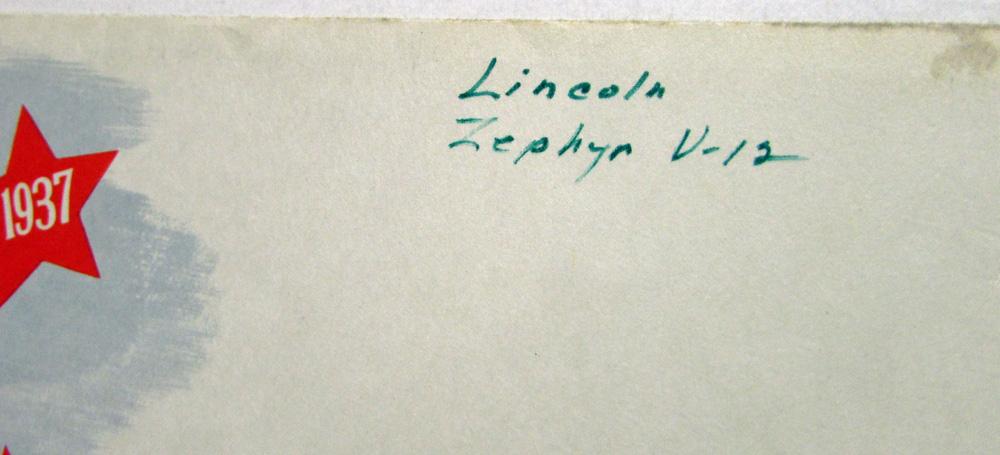 Lincoln
Zephyr V-12
1937